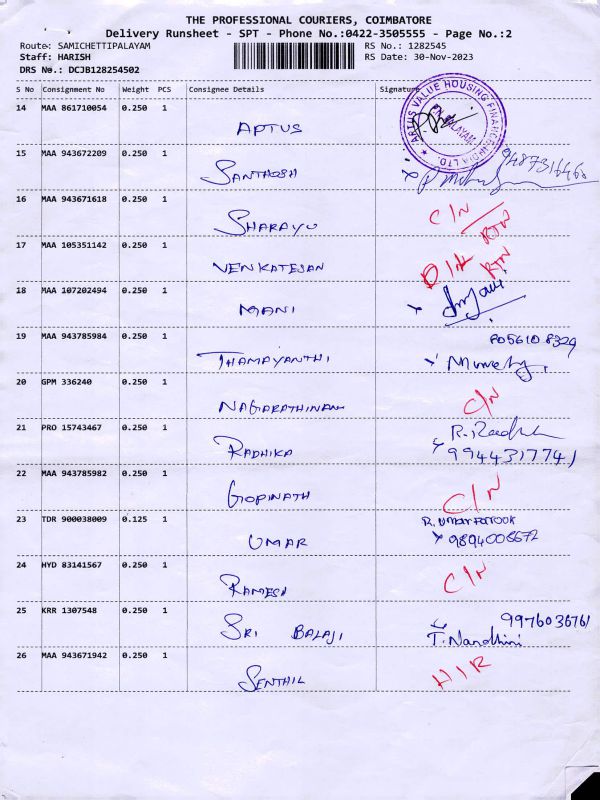 THE PROFESSIONAL COURIERS, COIMBATORE
Delivery Runsheet - SPT - Phone No.:0422-3505555 - Page No.:2
Route: SAMICHETTIPALAYAM RS No.: 1282545
Staff: HARISH RS Date: 30-Nov-2023
DRS No.: DCJB128254502
S No Consignment No Weight PCS Consignee Details Signature
14 MAA 861710054 0.250 1
APTUS
APTUS VALUE HOUSING FINANCE INDIA LTD.
15 MAA 943672209 0.250 1
SANTHOSH
16 MAA 943671618 0.250 1
SHARAYU C/N RTN
17 MAA 105351142 0.250 1
VENKATESAN RTN
18 MAA 107202494 0.250 1
MANI
19 MAA 943785984 0.250 1
THAMAYANTHI
20 GPM 336240 0.250 1
NAGARATHINAM C/N
21 PRO 15743467 0.250 1
RADHIKA 9944317741
22 MAA 943785982 0.250 1
GOPINATH C/N
23 TDR 900038009 0.125 1
UMAR 9894006672
24 HYD 83141567 0.250 1
RAMESH C/N
25 KRR 1307548 0.250 1
997603676/
SRI BALAJI T. Nandhini
26 MAA 943671942 0.250 1
SENTHIL